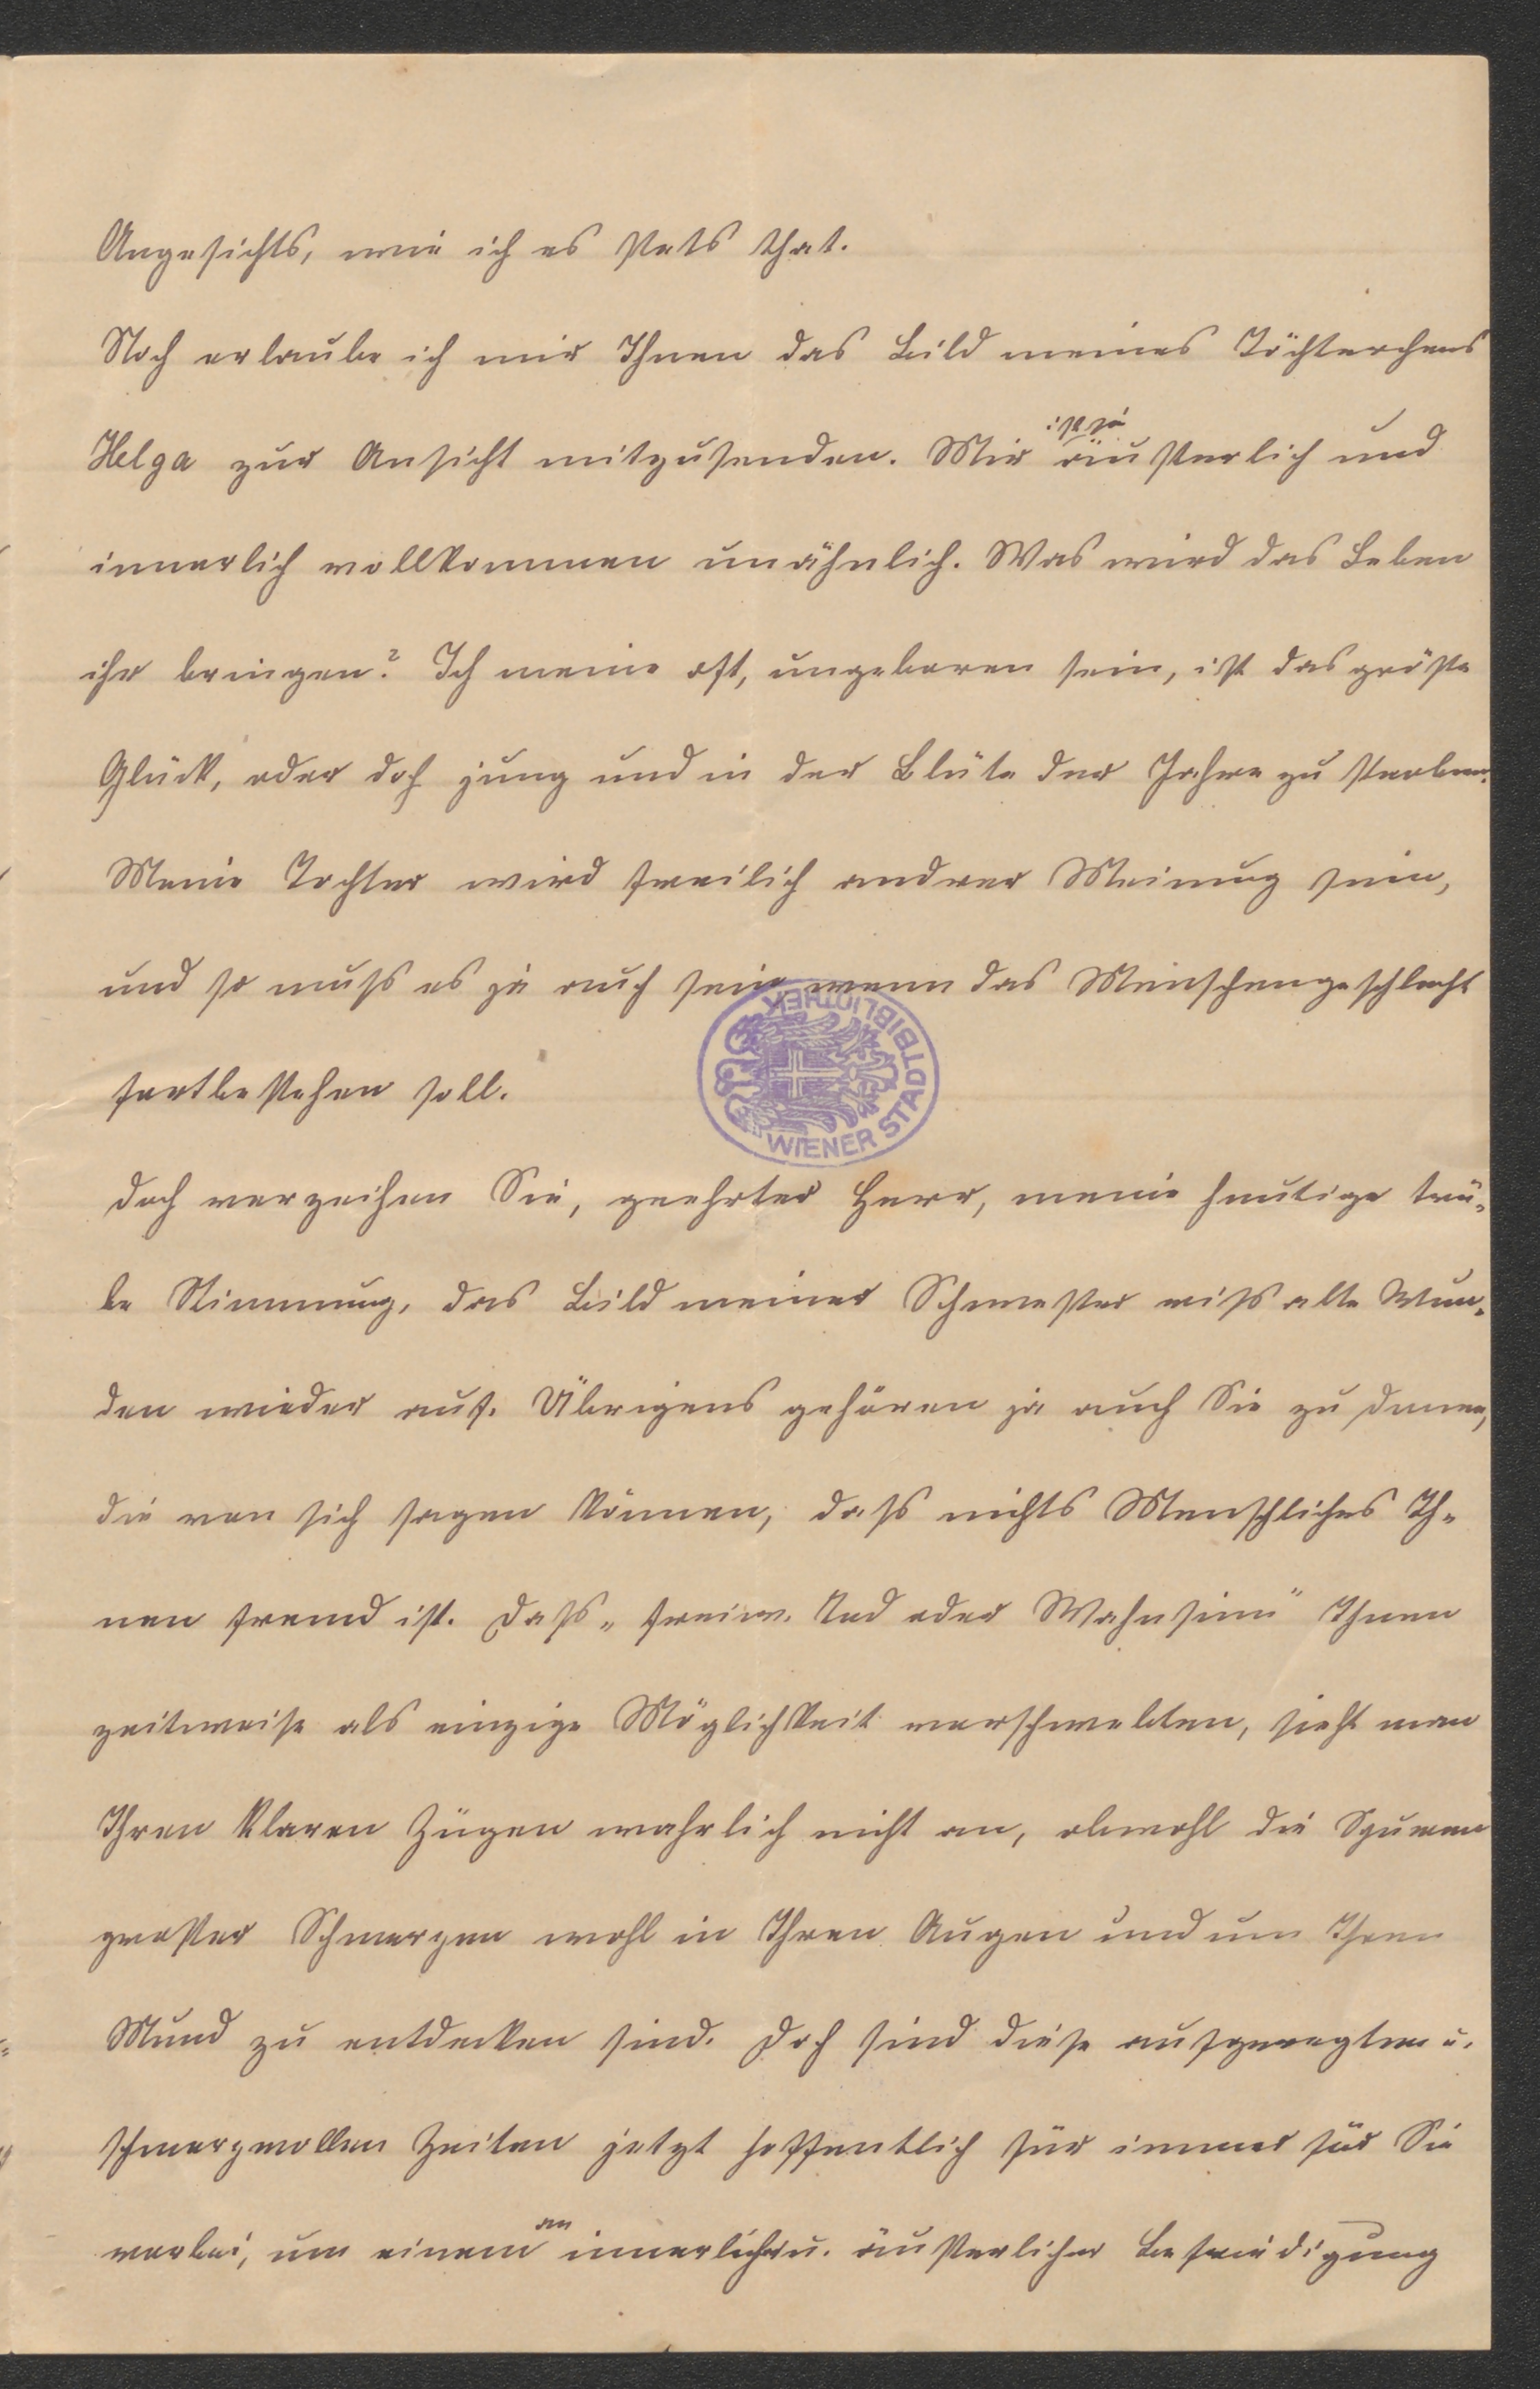 Angesichts, wie ich es stets that.
Noch erlaube ich mir Ihnen das Bild meines Töchterchens
ist sie
Helga zur Ansicht mitzusenden. Mir äußerlich und
innerlich vollkommen unähnlich. Was wird das Leben
ihr bringen? Ich meine oft, ungeboren sein, ist das größte
Glück, oder doch jung und in der Blüte der Jahre zu sterben.
Meine Tochter wird freilich andrer Meinung sein,
und so muss es ja auch sein wenn das Menschengeschlecht
fortbestehen soll.
WIENER STADTBIBLIOTHEK
Doch verzeihen Sie, geehrter Herr, meine heutige trü-
be Stimmung, das Bild meiner Schwester riss alte Wun-
den wieder auf. Übrigens gehören ja auch Sie zu denen,
die von sich sagen können, dass nichts Menschliches Ih-
nen fremd ist. Dass „freiw. Tod oder Wahnsinn" Ihnen
zeitweise als einzige Möglichkeit vorschwebten, sieht man
Ihren klaren Zügen wahrlich nicht an, obwohl die Spuren
großer Schmerzen wohl in Ihren Augen und um Ihren
Mund zu entdecken sind. Doch sind diese aufgeregten u.
schmerzvollen Zeiten jetzt hoffentlich für immer für Sie
an
vorbei, um einem innerlicher u. äußerlicher Befriedigung